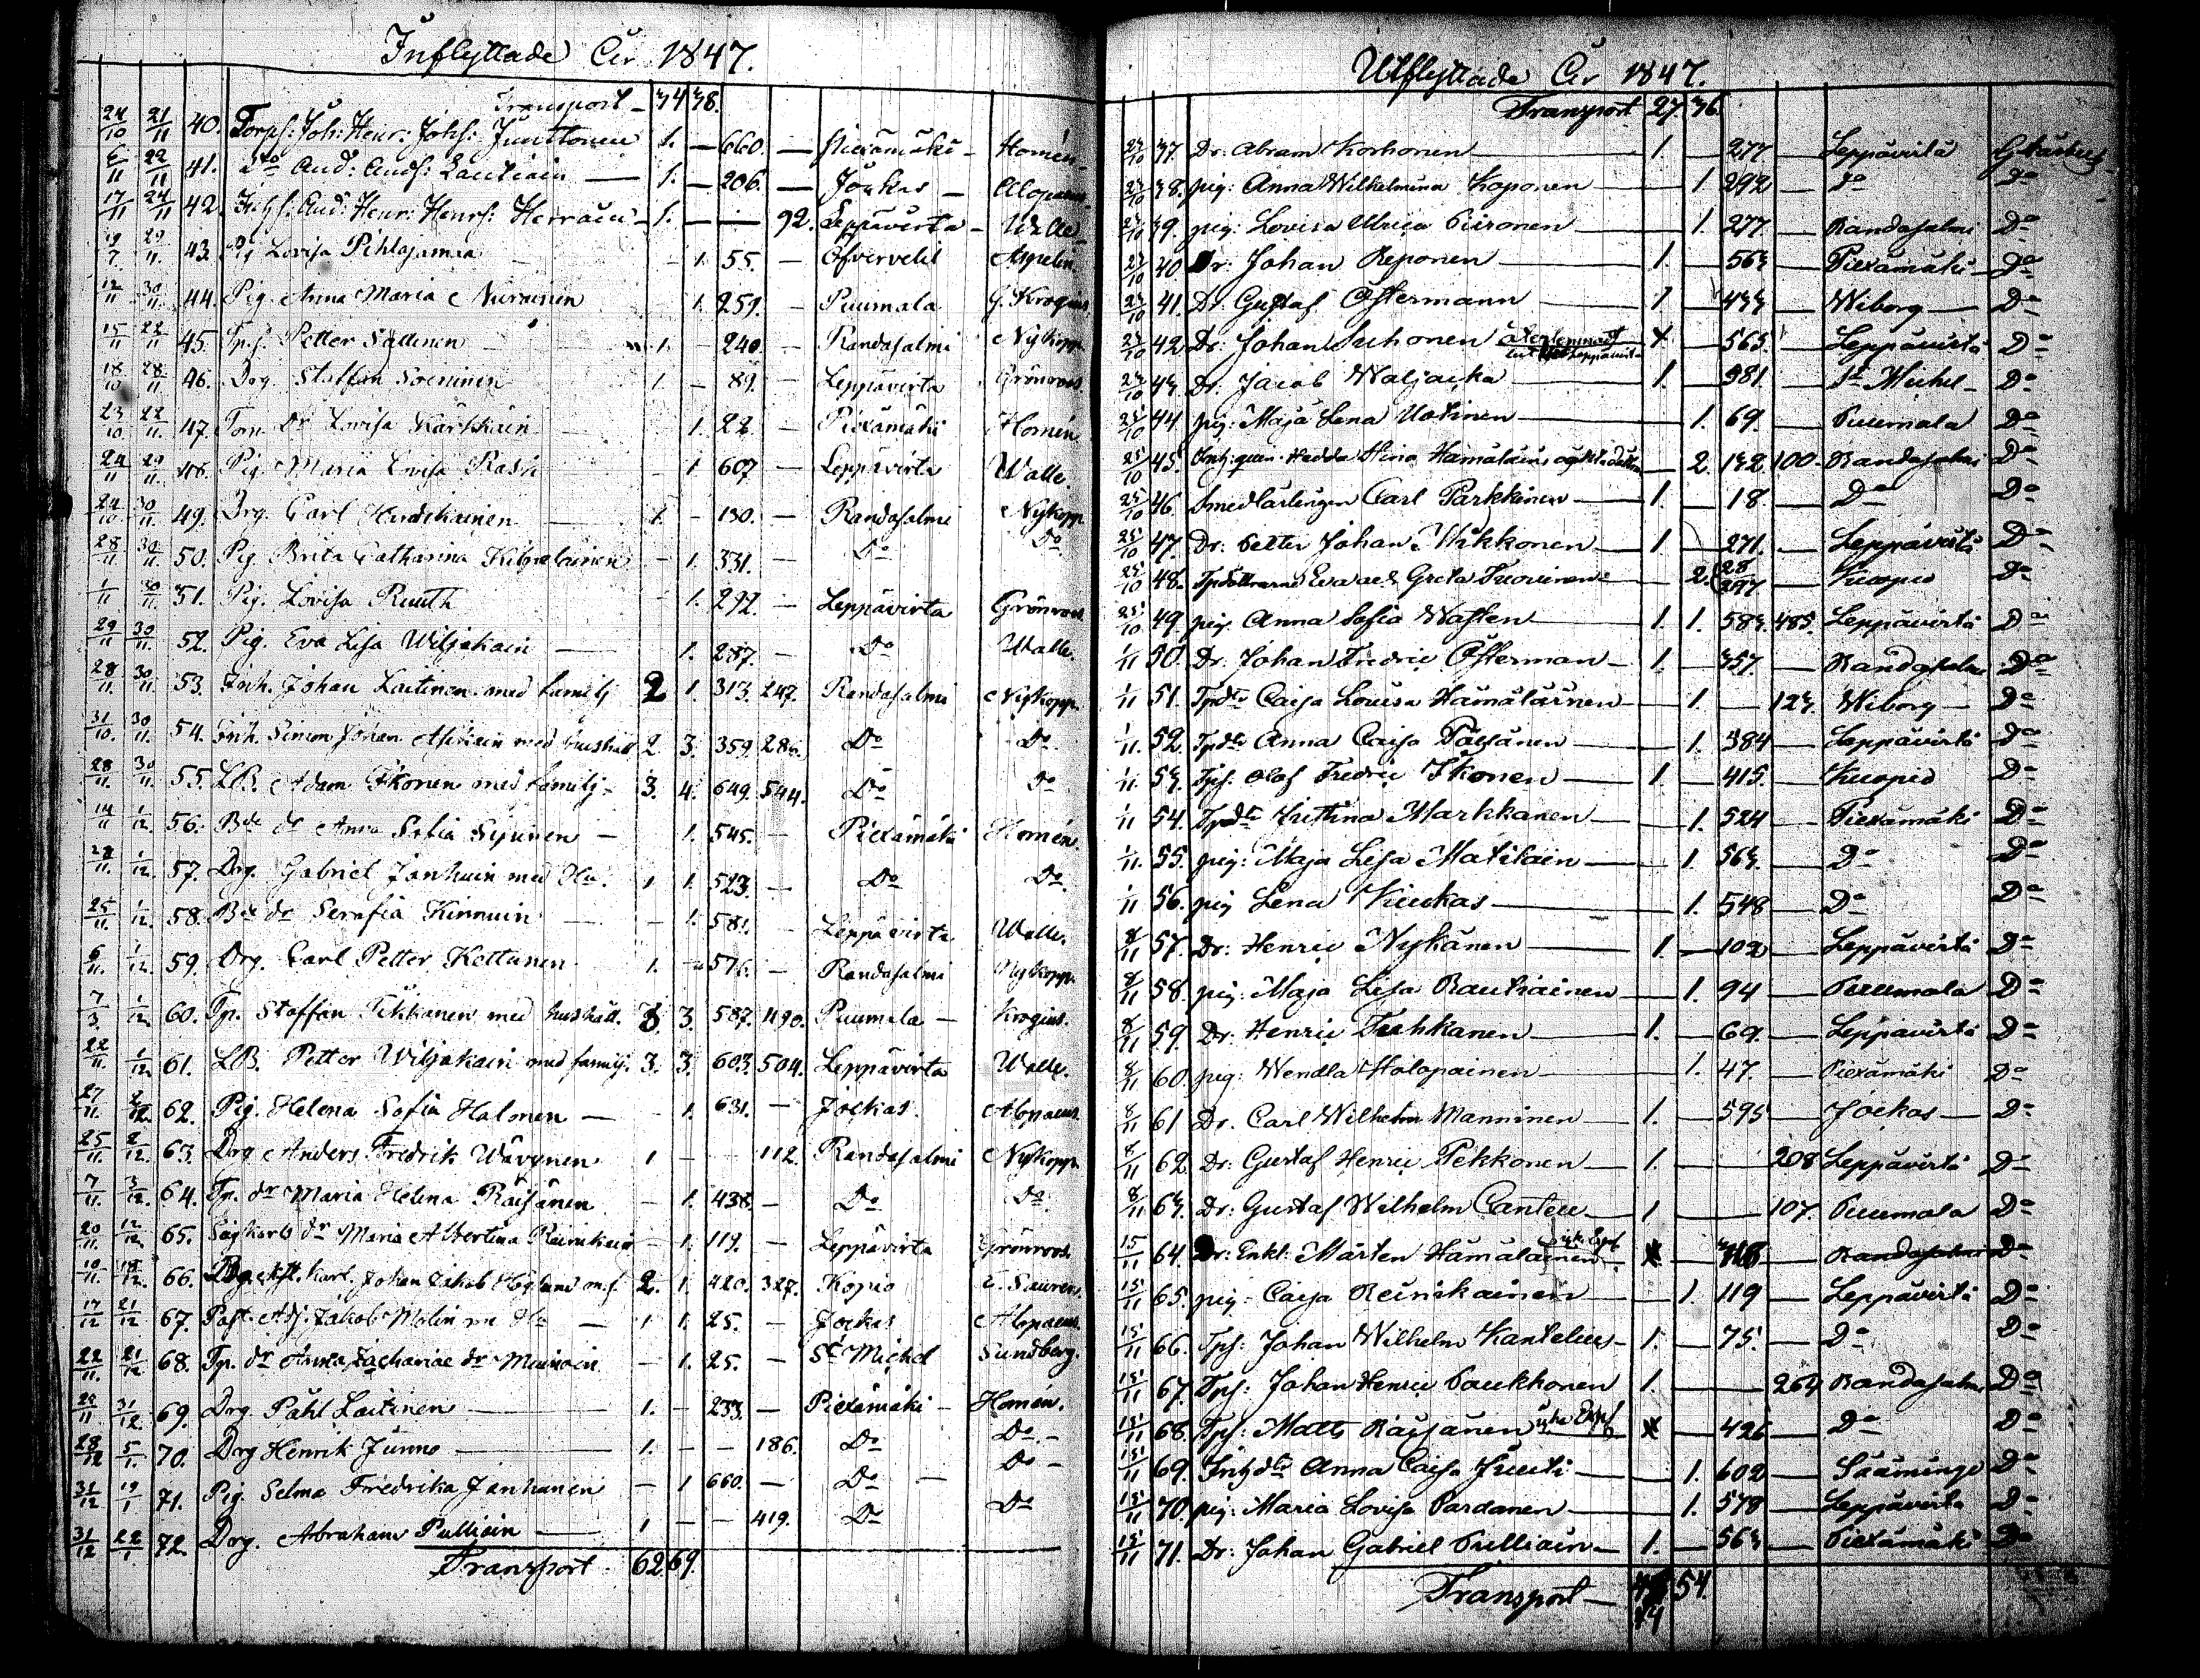 Inflyttade År 1847.
Transport 34 38.
24/10 21/11 40. Torps: Joh: Henr: Johs: Junttonen 1. — 660. — Piexämäki Homén
6/11 22/11 41. Dto And: Ands: Lautiain — 1. — 206. — Jockas — Alopaeus
17/11 24/11 42. Inhs: And: Henr: Henrs: Herrain 1. — — 92. Leppävirta — Walle
19/7 29/11 43. Pig Lovisa Pihlajamaa — 1. 55. — Aspelin
12/11 30/11 44. Pig. Anna Maria Nurminen 1. 259. — Puumala J. Krogius
15/11 22/11 45. Tps. Petter Sallinen 1. — 240. — Randasalmi Nykopp
18/10 28/11 46. Drg. Staffan Soininen 1. — 89. — Leppävirta Grönroos
23/10 22/11 47. Torp. Dr Lovisa Kärkkäin 1. 22. — Piexämäki Homén
24/11 29/11 48. Pig. Maria Lovisa Rask — 1. 607 — Leppävirta Walle.
24/10 30/11 49. Drg. Carl Huiskainen 1. — 130. — Randasalmi Nykopp
28/11 30/11 50. Pig. Brita Catharina Kilpeläinen — 1. 331. — Do Do
1/11 30/11 51. Pig. Lovisa Ruuth — 1. 292. — Leppävirta Grönroos
29/11 30/11 52. Pig. Eva Lisa Wiljakain — 1. 287. — Do Walle.
28/11 30/11 53. Inh. Johan Laitinen med familj 2 1. 313. 247. Randasalmi Nykopp.
31/10 30/11 54. Inh. Simon Johan Asikain med hushåll 2. 3. 359. 286. Do Do
28/11 30/11 55. LB. Adam Ikonen med familj 3. 4. 649. 544. Do Do
14/11 1/12 56. Bde dr Anna Sofia Sepinen — 1. 545. — Piexämäki Homén.
28/11 1/12 57. Drg. Gabriel Janhuin med Hu. 1 1. 523. — Do Do.
25/11 1/12 58. Bde dr Serafia Kinnuin — 1. 581. — Leppävirta Walle.
6/11 1/12 59. Drg. Carl Petter Kettunen 1. — 576. — Randasalmi Nykopp
7/3 1/12 60. Tp. Staffan Tikkanen med hushåll. 3. 3. 587. 490. Puumala — Krogius.
22/11 1/12 61. LB. Petter Wiljakain med familj. 3. 3. 603. 504. Leppävirta Walle.
27/11 2/12 62. Pig. Helena Sofia Halonen — — 1. 631. — Jockas. Alopaeus.
25/11 2/12 63. Drg Anders Fredrik Wäyrynen 1 — — 112. Randasalmi Nykopp
7/11 3/12 64. Tp. dr Maria Helena Räisänen — 1. 438. — Do Do
20/11 12/12 65. dr Maria Albertina Reinikain — 1. 119. — Leppävirta Grönroos.
10/11 18/12 66. Karl Johan Jakob Höglund m. f. 2. 1. 420. 327. Kopio
17/12 21/12 67. Past. Adj. Jakob Molin m Hu — 1 1. 25. — Jockas Alopaeus.
22/11 21/12 68. Tp. dr Anna Zachariae dr Muinoin — 1. 25. — St Michel Sundberg.
29/11 31/12 69. Drg. Påhl Laitinen — 1. — 233. — Piexämäki — Homén.
28/12 5/1 70. Drg Henrik Junno — 1. — — 186. Do Do —
31/12 19/1 71. Pig. Selma Fredrika Janhunen — 1 660. — Do — Do —
31/12 22/1 72. Drg. Abraham Pulliain — 1 — — 419. Do Do
Transport 62. 69.
Utflyttade År 1847.
Transport 27. 36.
23/10 37. Dr. Abram Korhonen — 1. — 277 — Leppävirta
23/10 38. pig: Anna Wilhelmina Koponen — 1. 292 — Do Do
23/10 39. pig: Lovisa Ulrica Piironen — 1. 277. — Randasalmi Do
23/10 40 Dr: Johan Reponen — 1. — 563 — Piexämäki — Do
23/10 41. Dr: Gustaf Östermann — 1 — 433 — Wiborg — Do
23/10 42. Dr: Johan Suhonen — 565. — Leppävirta Do
23/10 43. Dr. Jacob Waljacka — 1. — 381. — St Michel — Do
25/10 44 pig: Maja Lena Uotinen — 1. 69. — Puumala Do
25/10 45. Hedda Stina Hämäläins — 2. 132. 100. Randasalmi Do
25/10 46. Smedlärlingen Carl Parkkinen — 1. — 18. — Do — Do
25/10 47. Dr: Petter Johan Mikkonen — 1. — 271. — Leppävirta Do
25/10 48. Eva och Greta Tuovinen — 2. 28 297 — Kuopio Do
25/10 49 pig. Anna Sofia Wasten — 1. 1. 583. 485. Leppävirta Do
1/11 50. Dr. Johan Fredric Österman — 1. — 357. — Randasalmi Do
1/11 51. Tpdtr Caisa Lovisa Hämäläinen — 1. — 123. Wiborg — Do
1/11 52. Tpdtr Anna Caisa Päiväinen — 1. 384 — Leppävirta Do
1/11 53. Tps: Olof Fredric Ikonen — 1. — 415. — Kuopio Do
1/11 54. Tpdtr Justina Markkanen — 1. 524 — Piexämäki Do
1/11 55. pig: Maja Lisa Matilain — 1. 563. — Do Do
1/11 56. pig Lena Kuukas — 1. 548 — Do Do
8/11 57. Dr: Henric Nykänen — 1. — 102 — Leppävirta Do
8/11 58. pig: Maja Lisa Rautiainen — 1. 94 — Puumala Do
8/11 59. Dr: Henric Tuhkanen — 1. — 69. — Leppävirta Do
8/11 60. pig: Wendla Holopainen — 1. 47. — Piexämäki Do
8/11 61 Dr. Carl Wilhelm Manninen — 1. — 595 — Jockas — Do
8/11 62. Dr: Gustaf Henric Pekkonen — 1. — 208 Leppävirta Do
8/11 63. Dr: Gustaf Wilhelm Canteu — 1 — 107. Puumala Do
15/11 64. Dr: Enkl: Mårten Hämäläinen — Randasalmi Do
15/11 65. pig: Caisa Reinikainen — 1. 119 — Leppävirta Do
15/11 66. Tps: Johan Wilhelm Kantelius — 1. — 75. — Do Do
15/11 67. Tps: Johan Henric Paukkonen 1. — 264 Randasalmi Do
15/11 68. Tps: Matts Räisänen — 426 — Do Do
15/11 69. Inhdtr Anna Caisa Juuti — 1. 602 — Sääminge Do
15/11 70. pig: Maria Lovisa Pardanen — 1. 578 — Leppävirta Do
15/11 71. Dr: Johan Gabriel Pulliain — 1. — 563 — Piexämäki Do
Transport — 54.